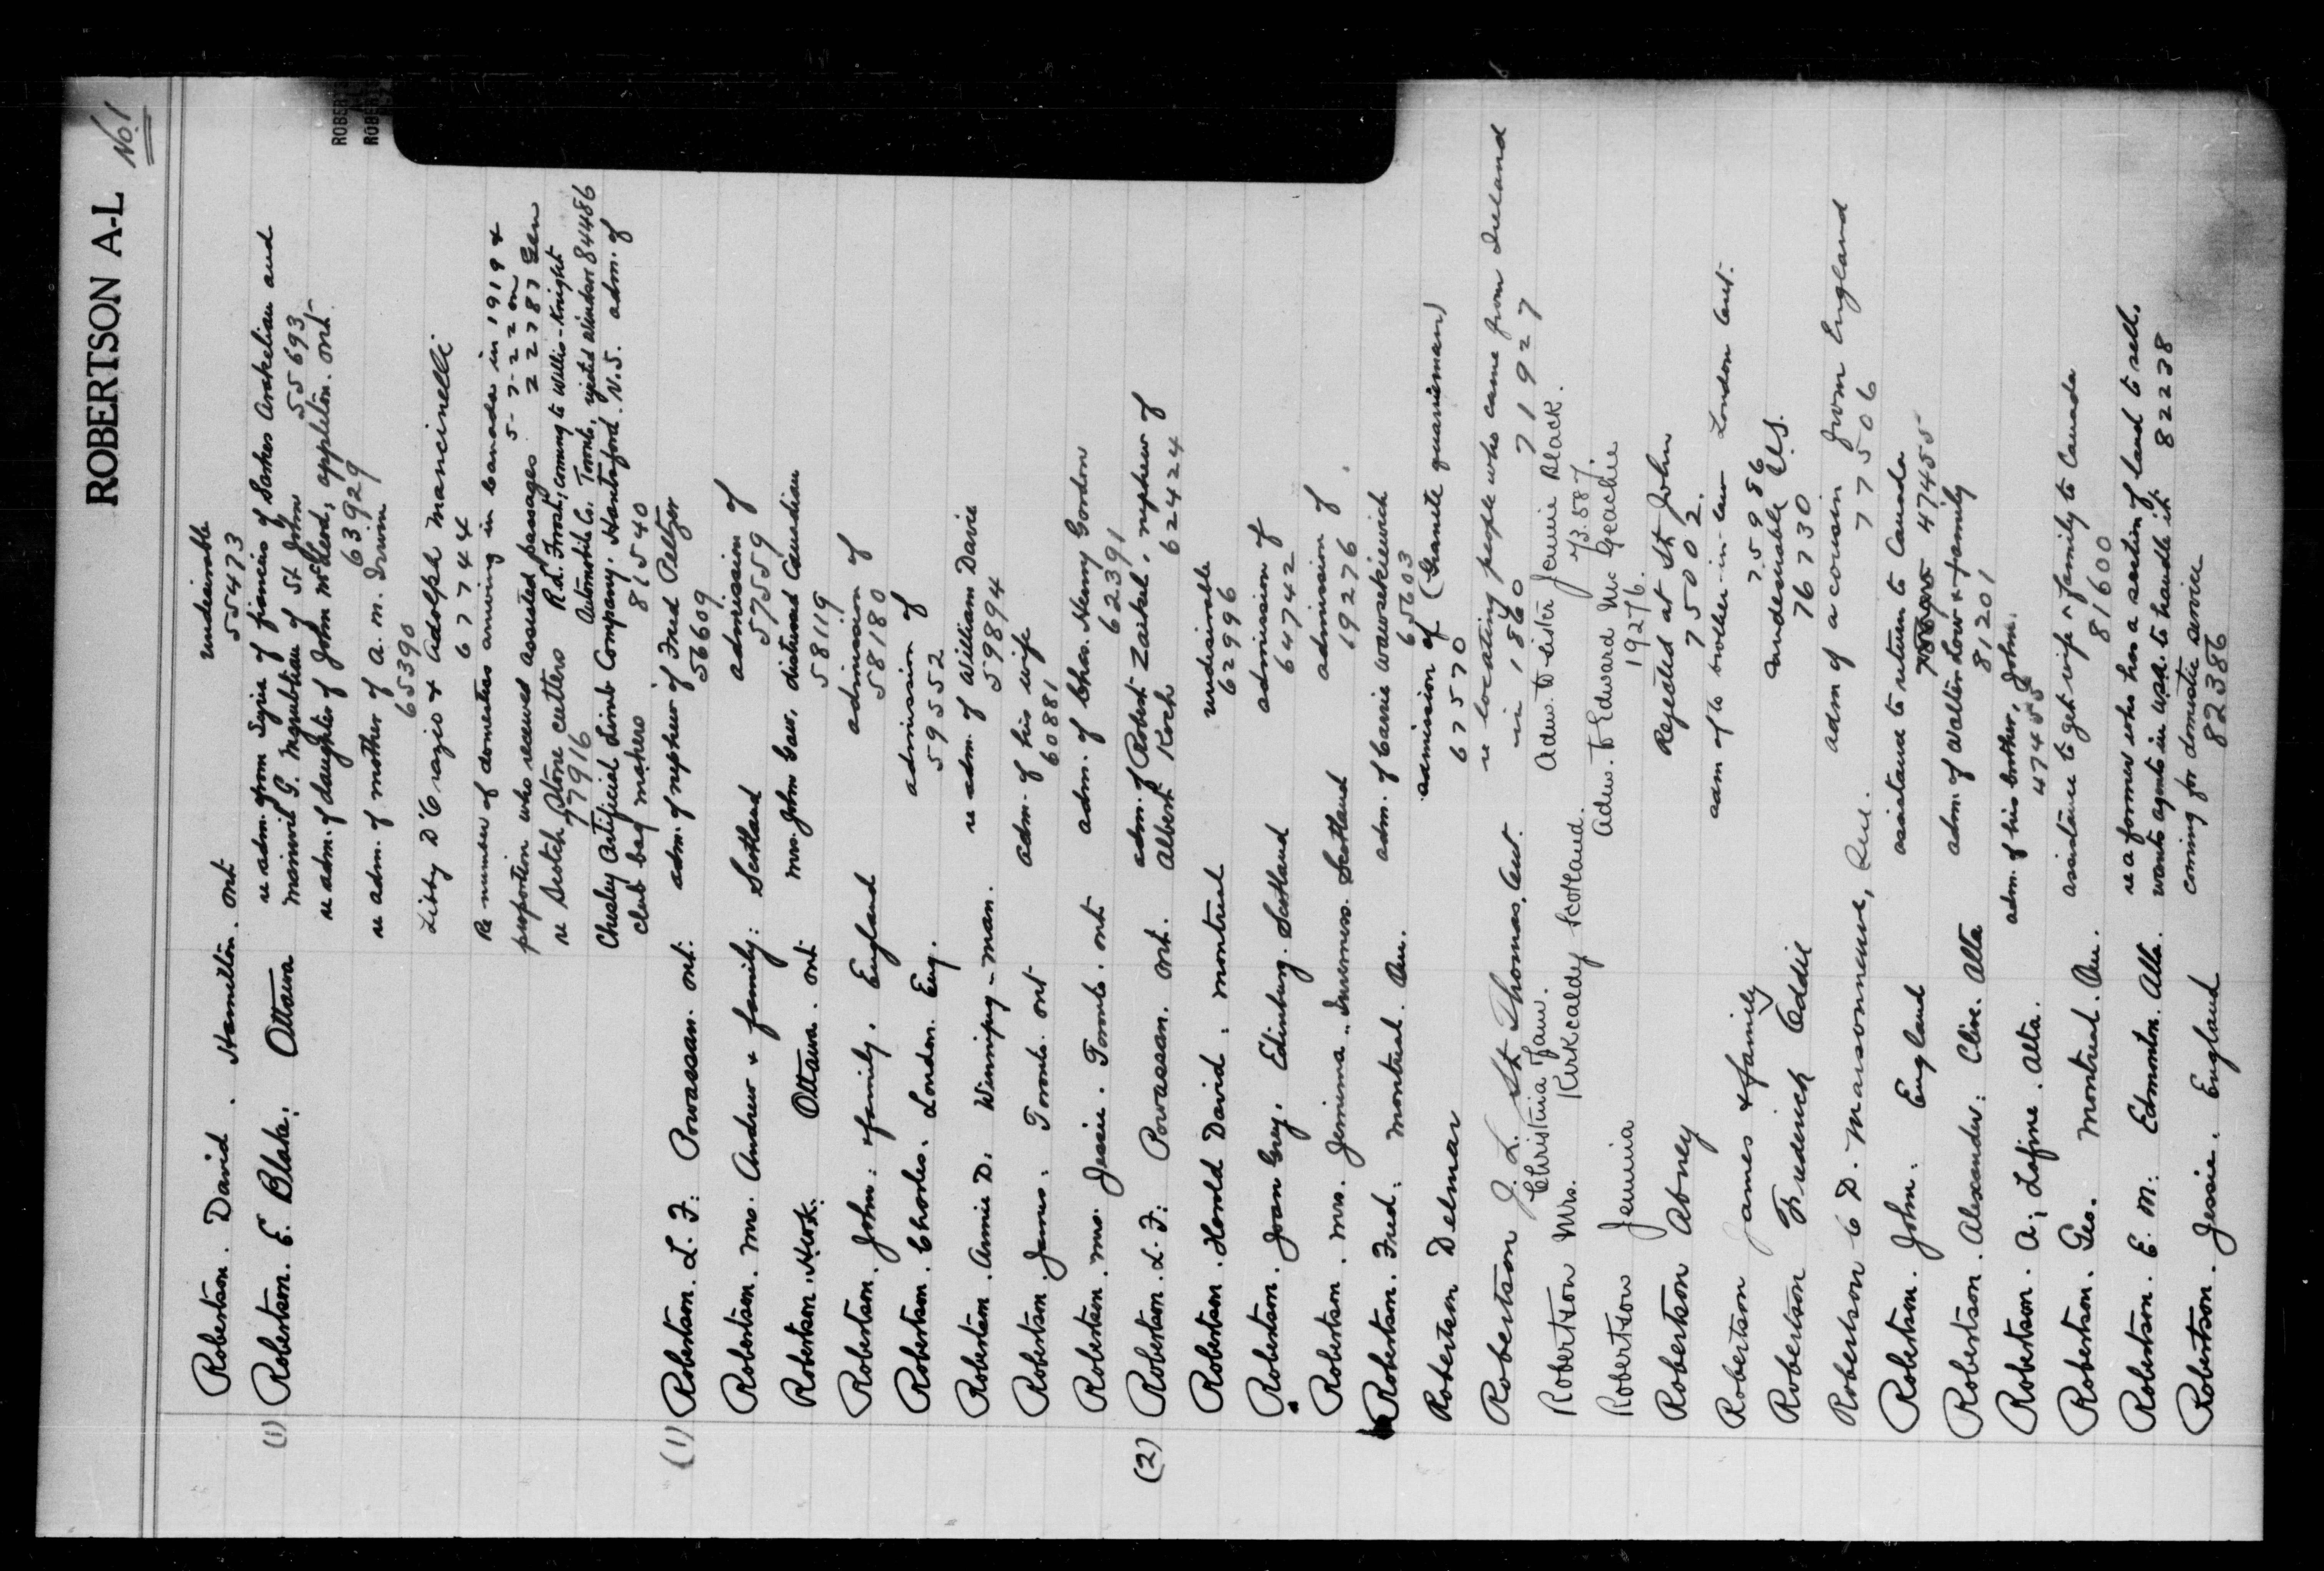 ROBERTSON A-L
No. 1
Robertson. David. Hamilton. Ont undesirable
55473
(1) Robertson. E. Blake: Ottawa re adm. from Syria of fiancies of Sarkes Arakelian and
of St. John 55693
re adm. of daughter of John McLeod, Appleton. Ont.
63929
re adm. of mother of A. M. Irwin
65390
Libby D'Orazio & Adolph Mancinelli
67744
Re number of domestics arriving in Canada in 1919 &
5-7-22 on
proportion who received assisted passages 222787 Gen
re Scotch Stone cutters R.d. Frosh, coming to Willis-Knight
77916 Automobile Co. Toronto, rejected Windsor 844486
Chesley Artificial Limb Company. Hantsford. N.S. adm. of
club bag makers 815540
(1) Robertson. L. F: Powassan. Ont. adm. of nephew of Fred Peltzer
56609
Robertson. Mrs. Andrew & family: Scotland admission of
57559
Robertson. Ottawa. Ont Mrs. John Gaw, distressed Canadian
58119
Robertson. John: & family. England admission of
58180
Robertson. Charles. London. Eng. admission of
59552
Robertson. Annie D. Winnipeg-Man. re adm. of William Davie
59894
Robertson. James. Toronto. Ont adm. of his wife
60881
Robertson. Mrs. Jessie. Toronto. Ont adm. of Chas. Henry Gordon
62391
(2) Robertson. L. F: Powassan. Ont. adm. of Robert Zaikel, nephew of
Albert Koch 62424
Robertson. Harold David. Montreal undesirable
62996
Robertson. Joan Grey. Edinburg. Scotland admission of
64742
Robertson. Mrs. Jemima. Inverness. Scotland admission of
19276
Robertson. Fred. Montreal. Que. adm. of Carrie Wawsekiewich
65603
Robertson Delmar admission of (Granite quarrieman)
67570
Robertson J. L. St Thomas. Ont. re locating people who came from Ireland
in 1860 71927
Christina Jane.
Robertson Mrs. Kirkcaldy Scotland. Adm. to sister Jeannie Black.
73587.
Robertson Jemima Adm. to Edward Mc Geachie
19276.
Robertson Abney Rejected at St John
75002.
Robertson James & family adm of to brother-in-law London Ont.
75986
Robertson Frederick Eddie undesirable U.S.
76730
Robertson C D. Maisonneuve, Que. adm of a cousin from England
77506
Robertson. John. England assistance to return to Canada
47455
Robertson. Alexander: Clive. Alta adm. of Walter Low & family
81201
Robertson. A; Lafine. Alta. adm. of his brother, John.
47455
Robertson. Geo. Montreal. Que. assistance to get wife & family to Canada
81600
Robertson. E. M: Edmonton. Alta. re a farmer who has a section of land to sell,
wants agents in U.S.A. to handle it 82238
Robertson. Jessie. England coming for domestic service
82386